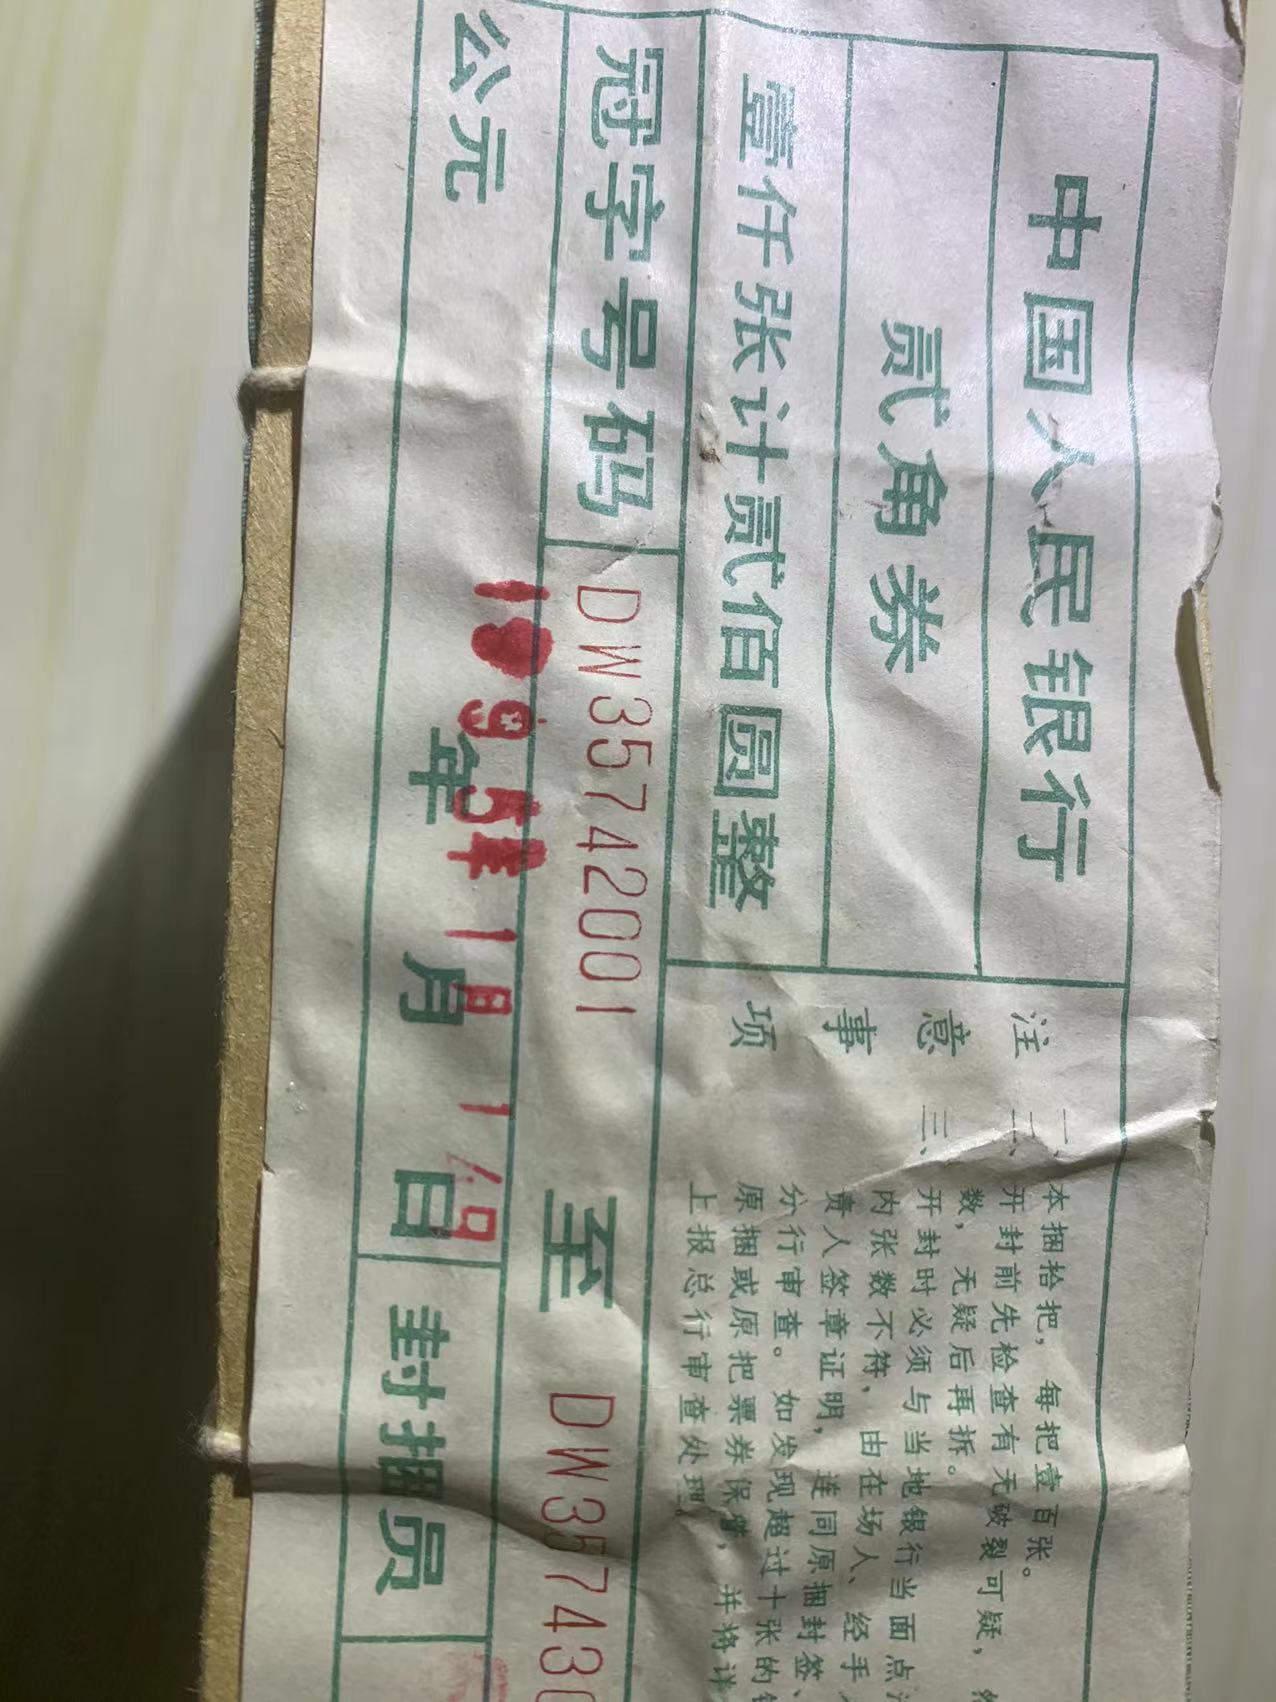 中国人民银行
贰角券
壹仟张计贰佰圆整
注意事项
一、本捆拾把，每把壹百张。
二、开封前先检查有无破裂可疑，
数，无疑后再拆。
三、开封时必须与当地银行当面点
内张数不符，由在场人、经手
责人签章证明，连同原捆封签、
分行审查。如发现超过十张的
原捆或原把票券保管，并将详
上报总行审查处理。
冠字号码 DW35742001 至 DW357430
公元 年 月 日 封捆员
19951月1